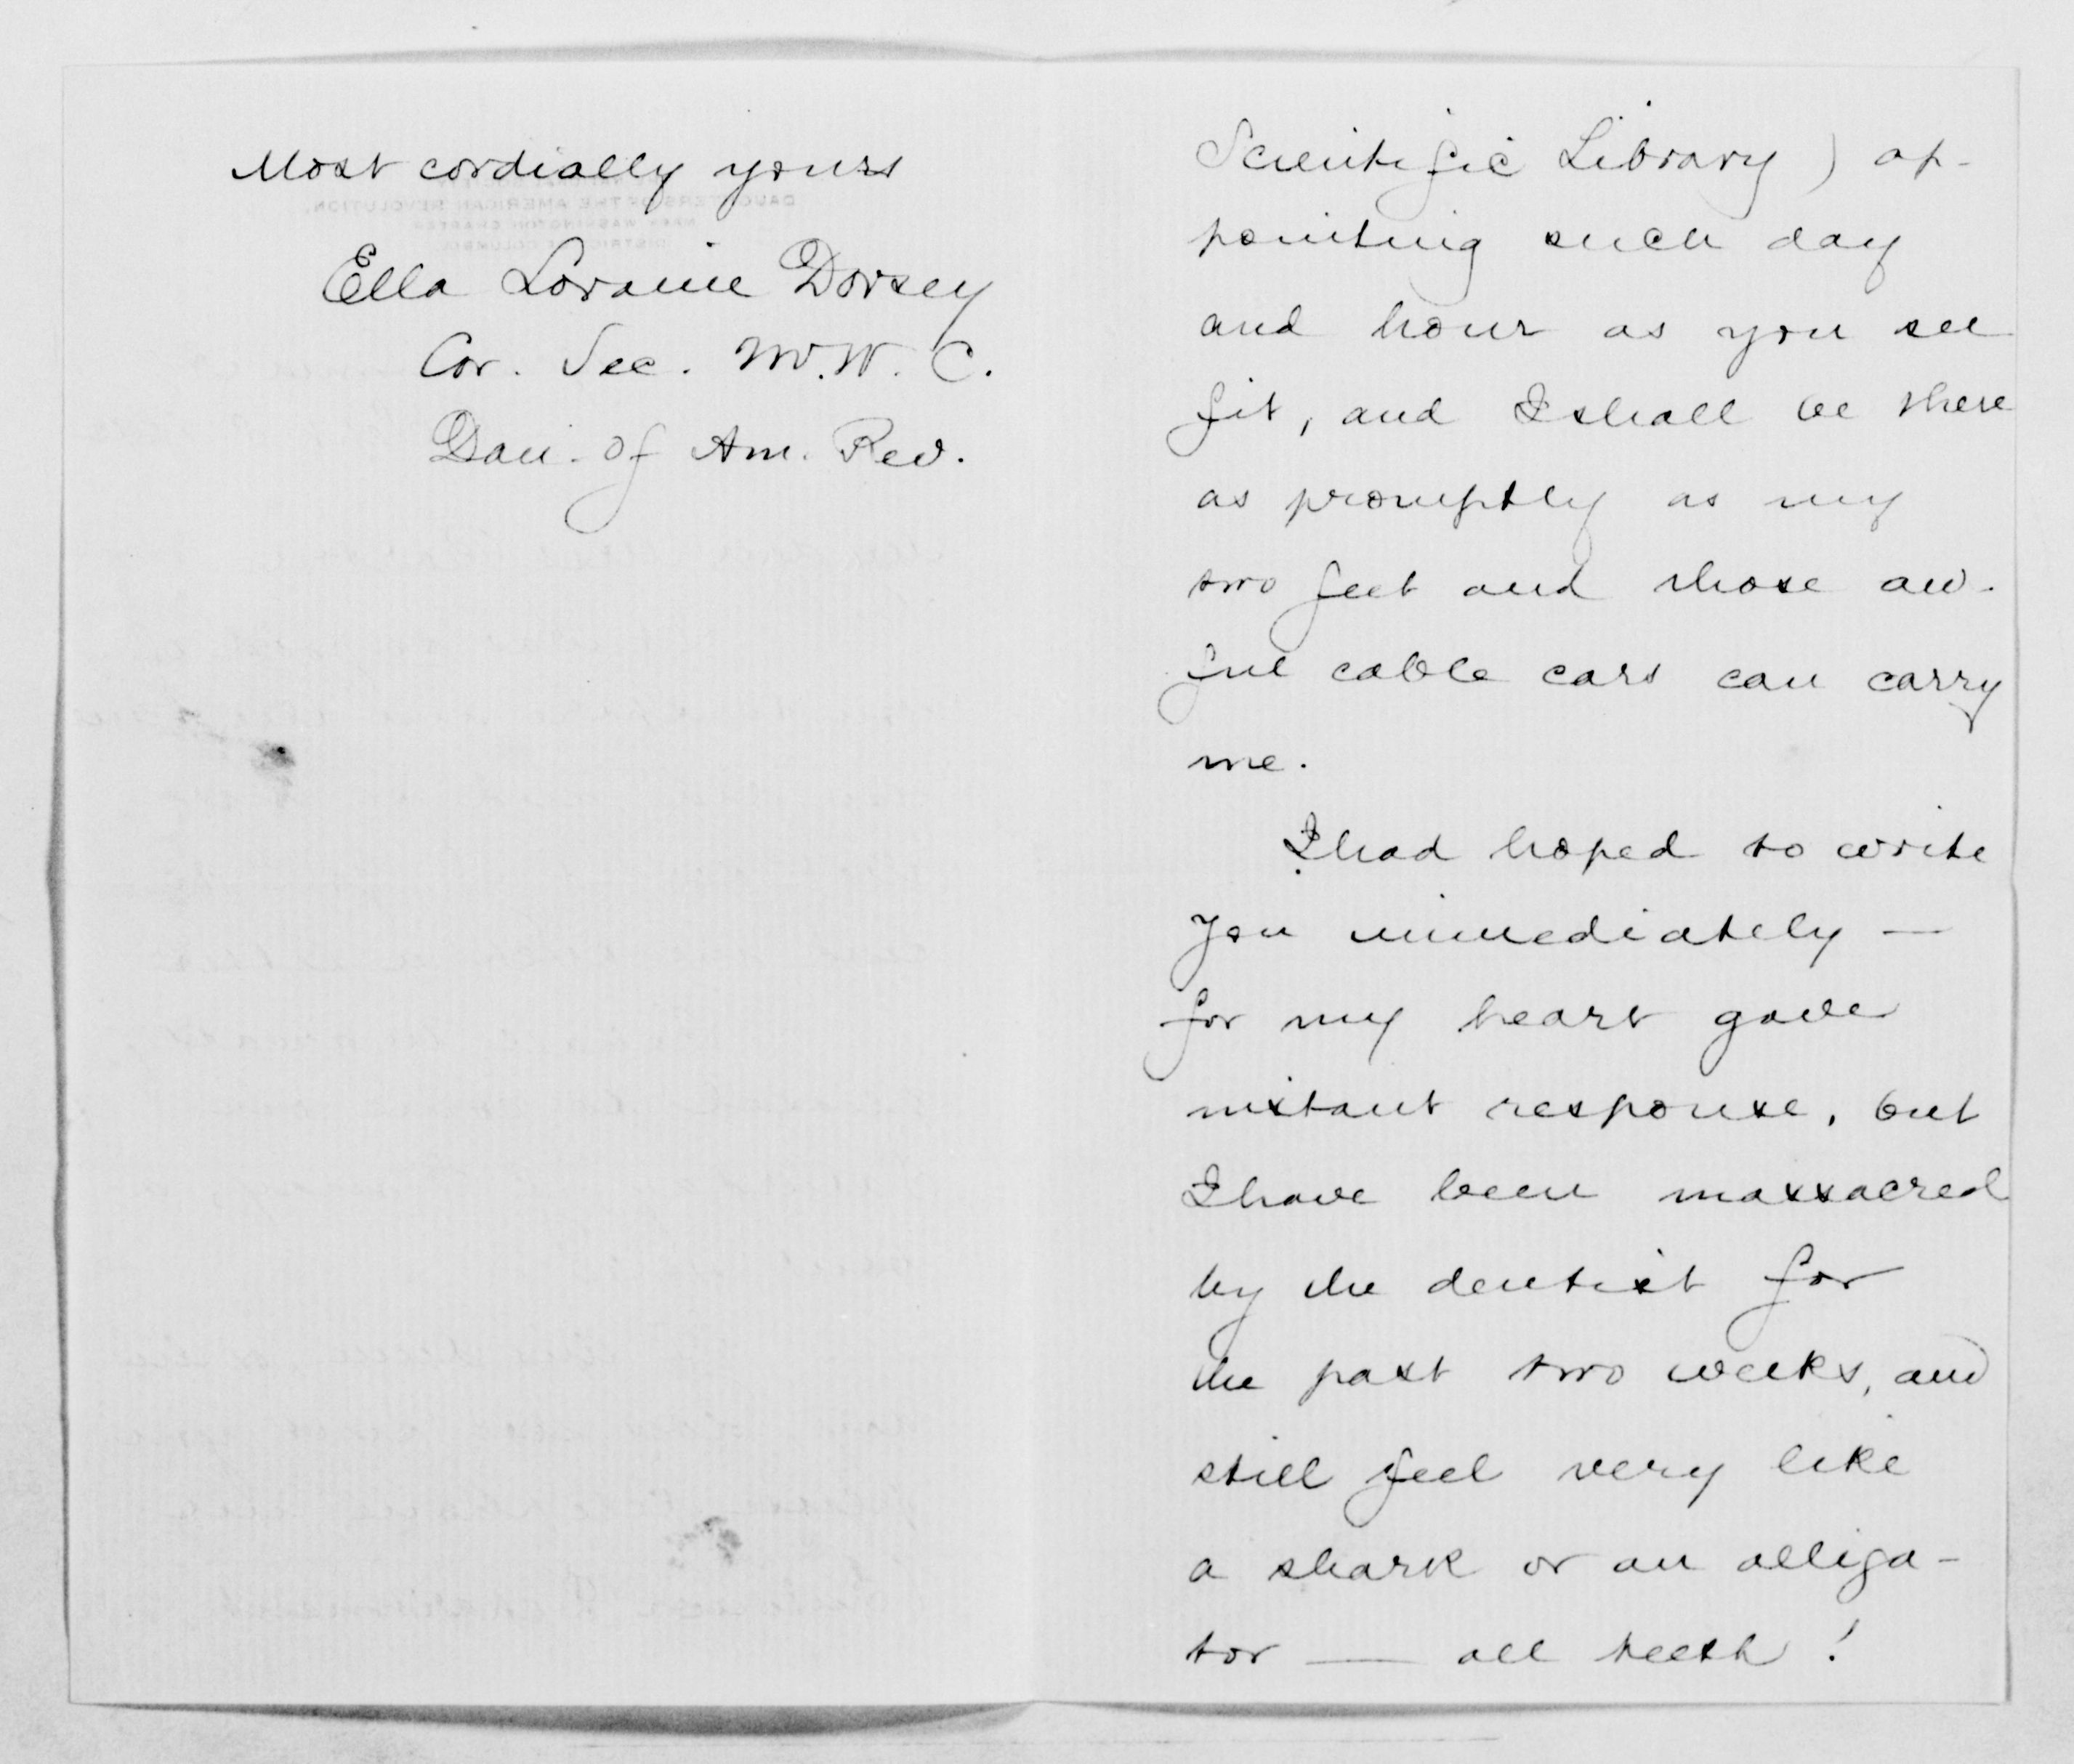 Most cordially yours
Ella Loraine Dorsey
Cor. Sec. M.W.C.
Dau. of Am. Rev.
Scientific Library) ap-
pointing such day
and hour as you see
fit, and I shall be there
as promptly as my
two feet and those aw-
ful cable cars can carry
me.
I had hoped to write
you immediately —
for my heart gave
instant response, but
I have been massacred
by the dentist for
the past two weeks, and
still feel very like
a shark or an alliga-
tor — all teeth!